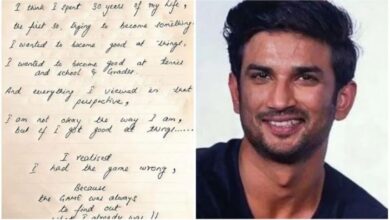 I think I spent 30 years of my life,
the first 30, trying to become something.
I wanted to become good at things.
I wanted to become good at tennis
and school & Grades.
And everything I viewed in that
perspective,
I am not okay the way I am,
but if I got good at things......
I realised
I had the game wrong,
Because
the GAME was always
to find out
what I already was !!